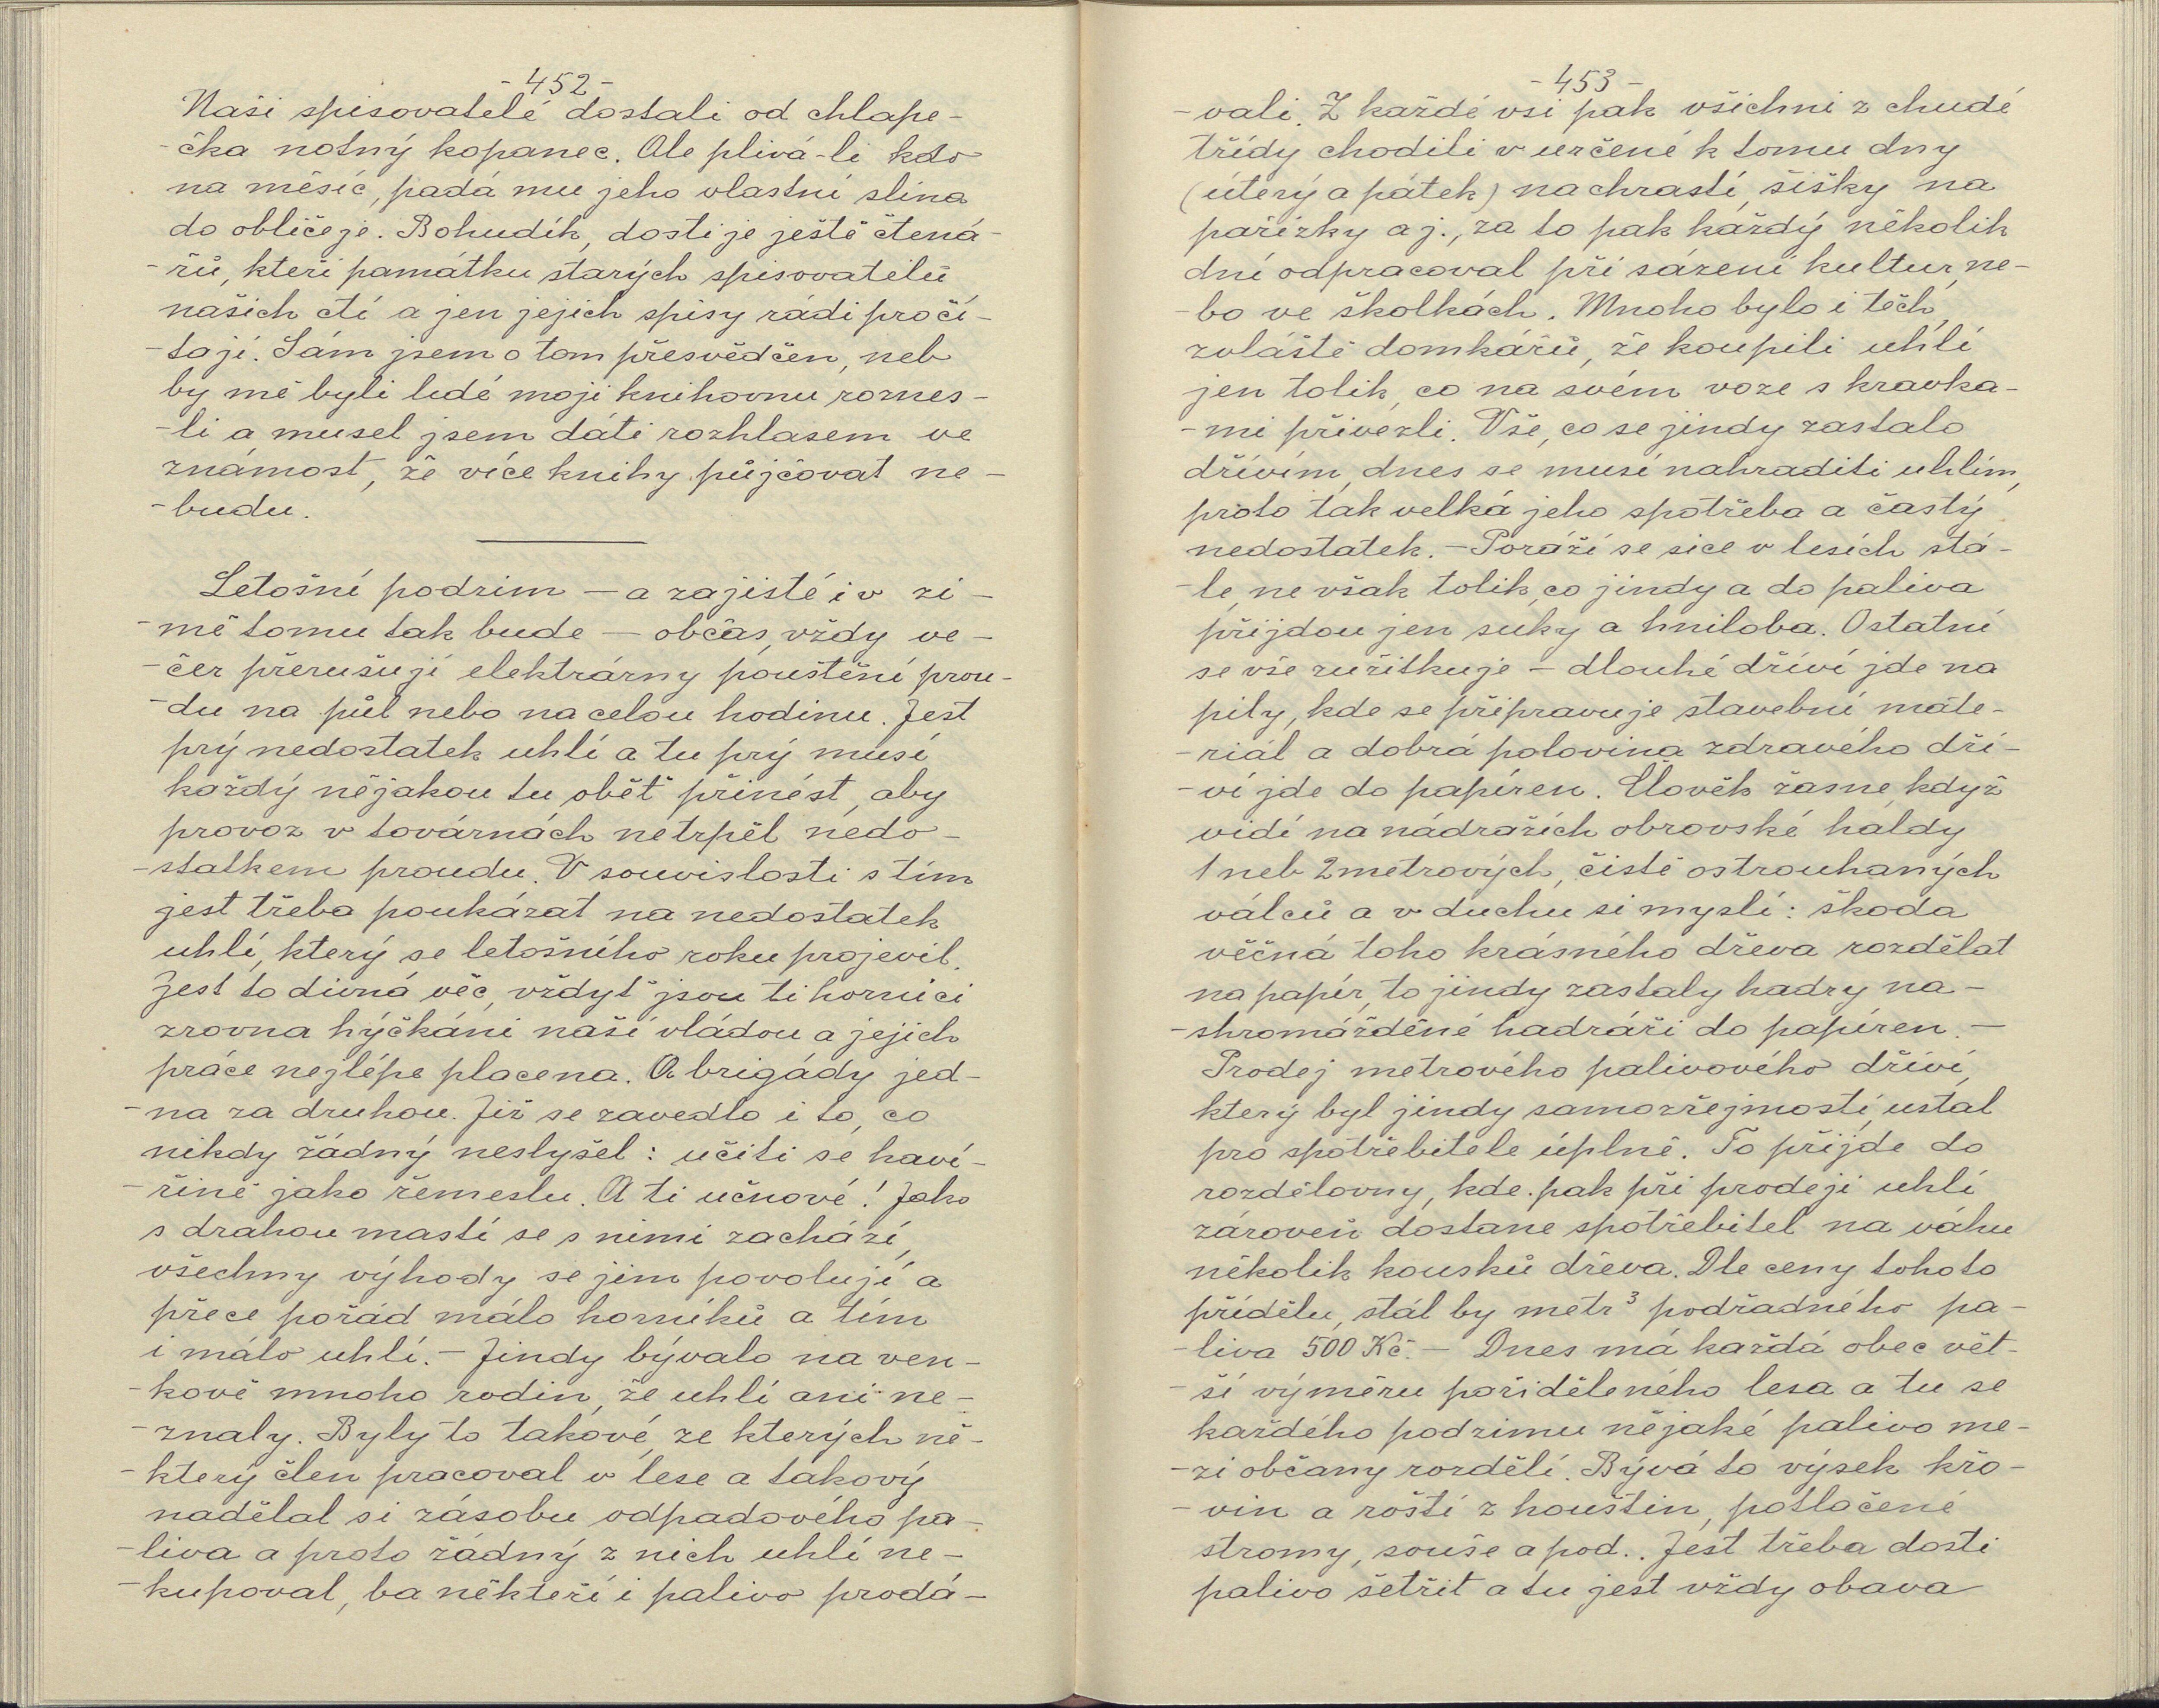 - 452 -
Naši spisovatelé dostali od chlape-
-čka notný kopanec. Ale plivá-li kdo
na měsíc, padá mu jeho vlastní slina
do obličeje. Bohudík, dosti je ještě čtená-
-řů, kteří památku starých spisovatelů
našich ctí a jen jejich spisy rádi pročí-
-tají. Sám jsem o tom přesvědčen, neb
by mě byli lidé moji knihovnu roznes-
-li a musel jsem dáti rozhlasem ve
známost, že více knihy půjčovat ne-
-budu.
Letošní podzim — a zajisté i v zi-
-mě tomu tak bude — občas, vždy ve-
-čer přerušují elektrárny pouštění prou-
-du na půl nebo na celou hodinu. Jest
prý nedostatek uhlí a tu prý musí
každý nějakou tu oběť přinést, aby
provoz v továrnách netrpěl nedo-
-statkem proudu. V souvislosti s tím
jest třeba poukázat na nedostatek
uhlí, který se letošního roku projevil.
Jest to divná věc, vždyť jsou ti horníci
zrovna hýčkáni naší vládou a jejich
práce nejlépe placena. A brigády jed-
-na za druhou. Již se zavedlo i to, co
nikdy žádný neslyšel: učiti se haví-
-řině jako řemeslu. A ti učnové! Jako
s drahou mastí se s nimi zachází,
všechny výhody se jim povolují a
přece pořád málo horníků a tím
i málo uhlí. — Jindy bývalo na ven-
-kově mnoho rodin, že uhlí ani ne-
-znaly. Byly to takové, ze kterých ně-
-který člen pracoval v lese a takový
nadělal si zásobu odpadového pa-
-liva a proto žádný z nich uhlí ne-
-kupoval, ba někteří i palivo prodá-
- 453 -
-vali. Z každé vsi pak všichni z chudé
třídy chodili v určené k tomu dny
(úterý a pátek) na chrastí, šišky na
pařízky a j., za to pak každý několik
dní odpracoval při sázení kultur, ne-
-bo ve školkách. Mnoho bylo i těch,
zvláště domkářů, že koupili uhlí
jen tolik, co na svém voze s kravka-
-mi přivezli. Vše, co se jindy zastalo
dřívím, dnes se musí nahraditi uhlím,
proto tak velká jeho spotřeba a častý
nedostatek. — Poráží se sice v lesích stá-
-le, ne však tolik, co jindy a do paliva
přijdou jen suky a hniloba. Ostatní
se vše zužitkuje — dlouhé dříví jde na
pily, kde se připravuje stavební mate-
-riál a dobrá polovina zdravého dří-
-ví jde do papíren. Člověk žasne, když
vidí na nádražích obrovské haldy
1 neb 2 metrových, čistě ostrouhaných
válců a v duchu si myslí: škoda
věčná toho krásného dřeva rozdělat
na papír, to jindy zastaly hadry na-
-shromážděné hadráři do papíren. —
Prodej metrového palivového dříví,
který byl jindy samozřejmostí, ustal
pro spotřebitele úplně. To přijde do
rozdělovny, kde pak při prodeji uhlí
zároveň dostane spotřebitel na váhu
několik kousků dřeva. Dle ceny tohoto
přídělu, stál by metr³ podřadného pa-
-liva 500 Kč. — Dnes má každá obec vět-
-ší výměru přiděleného lesa a tu se
každého podzimu nějaké palivo me-
-zi občany rozdělí. Bývá to výsek křo-
-vin a roští z houštin, potlačené
stromy, souše a pod.. Jest třeba dosti
palivo šetřit a tu jest vždy obava